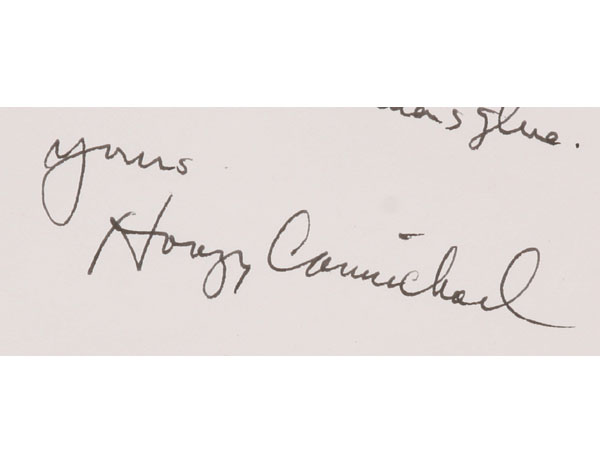 glue.
yours
Hoagy Carmichael